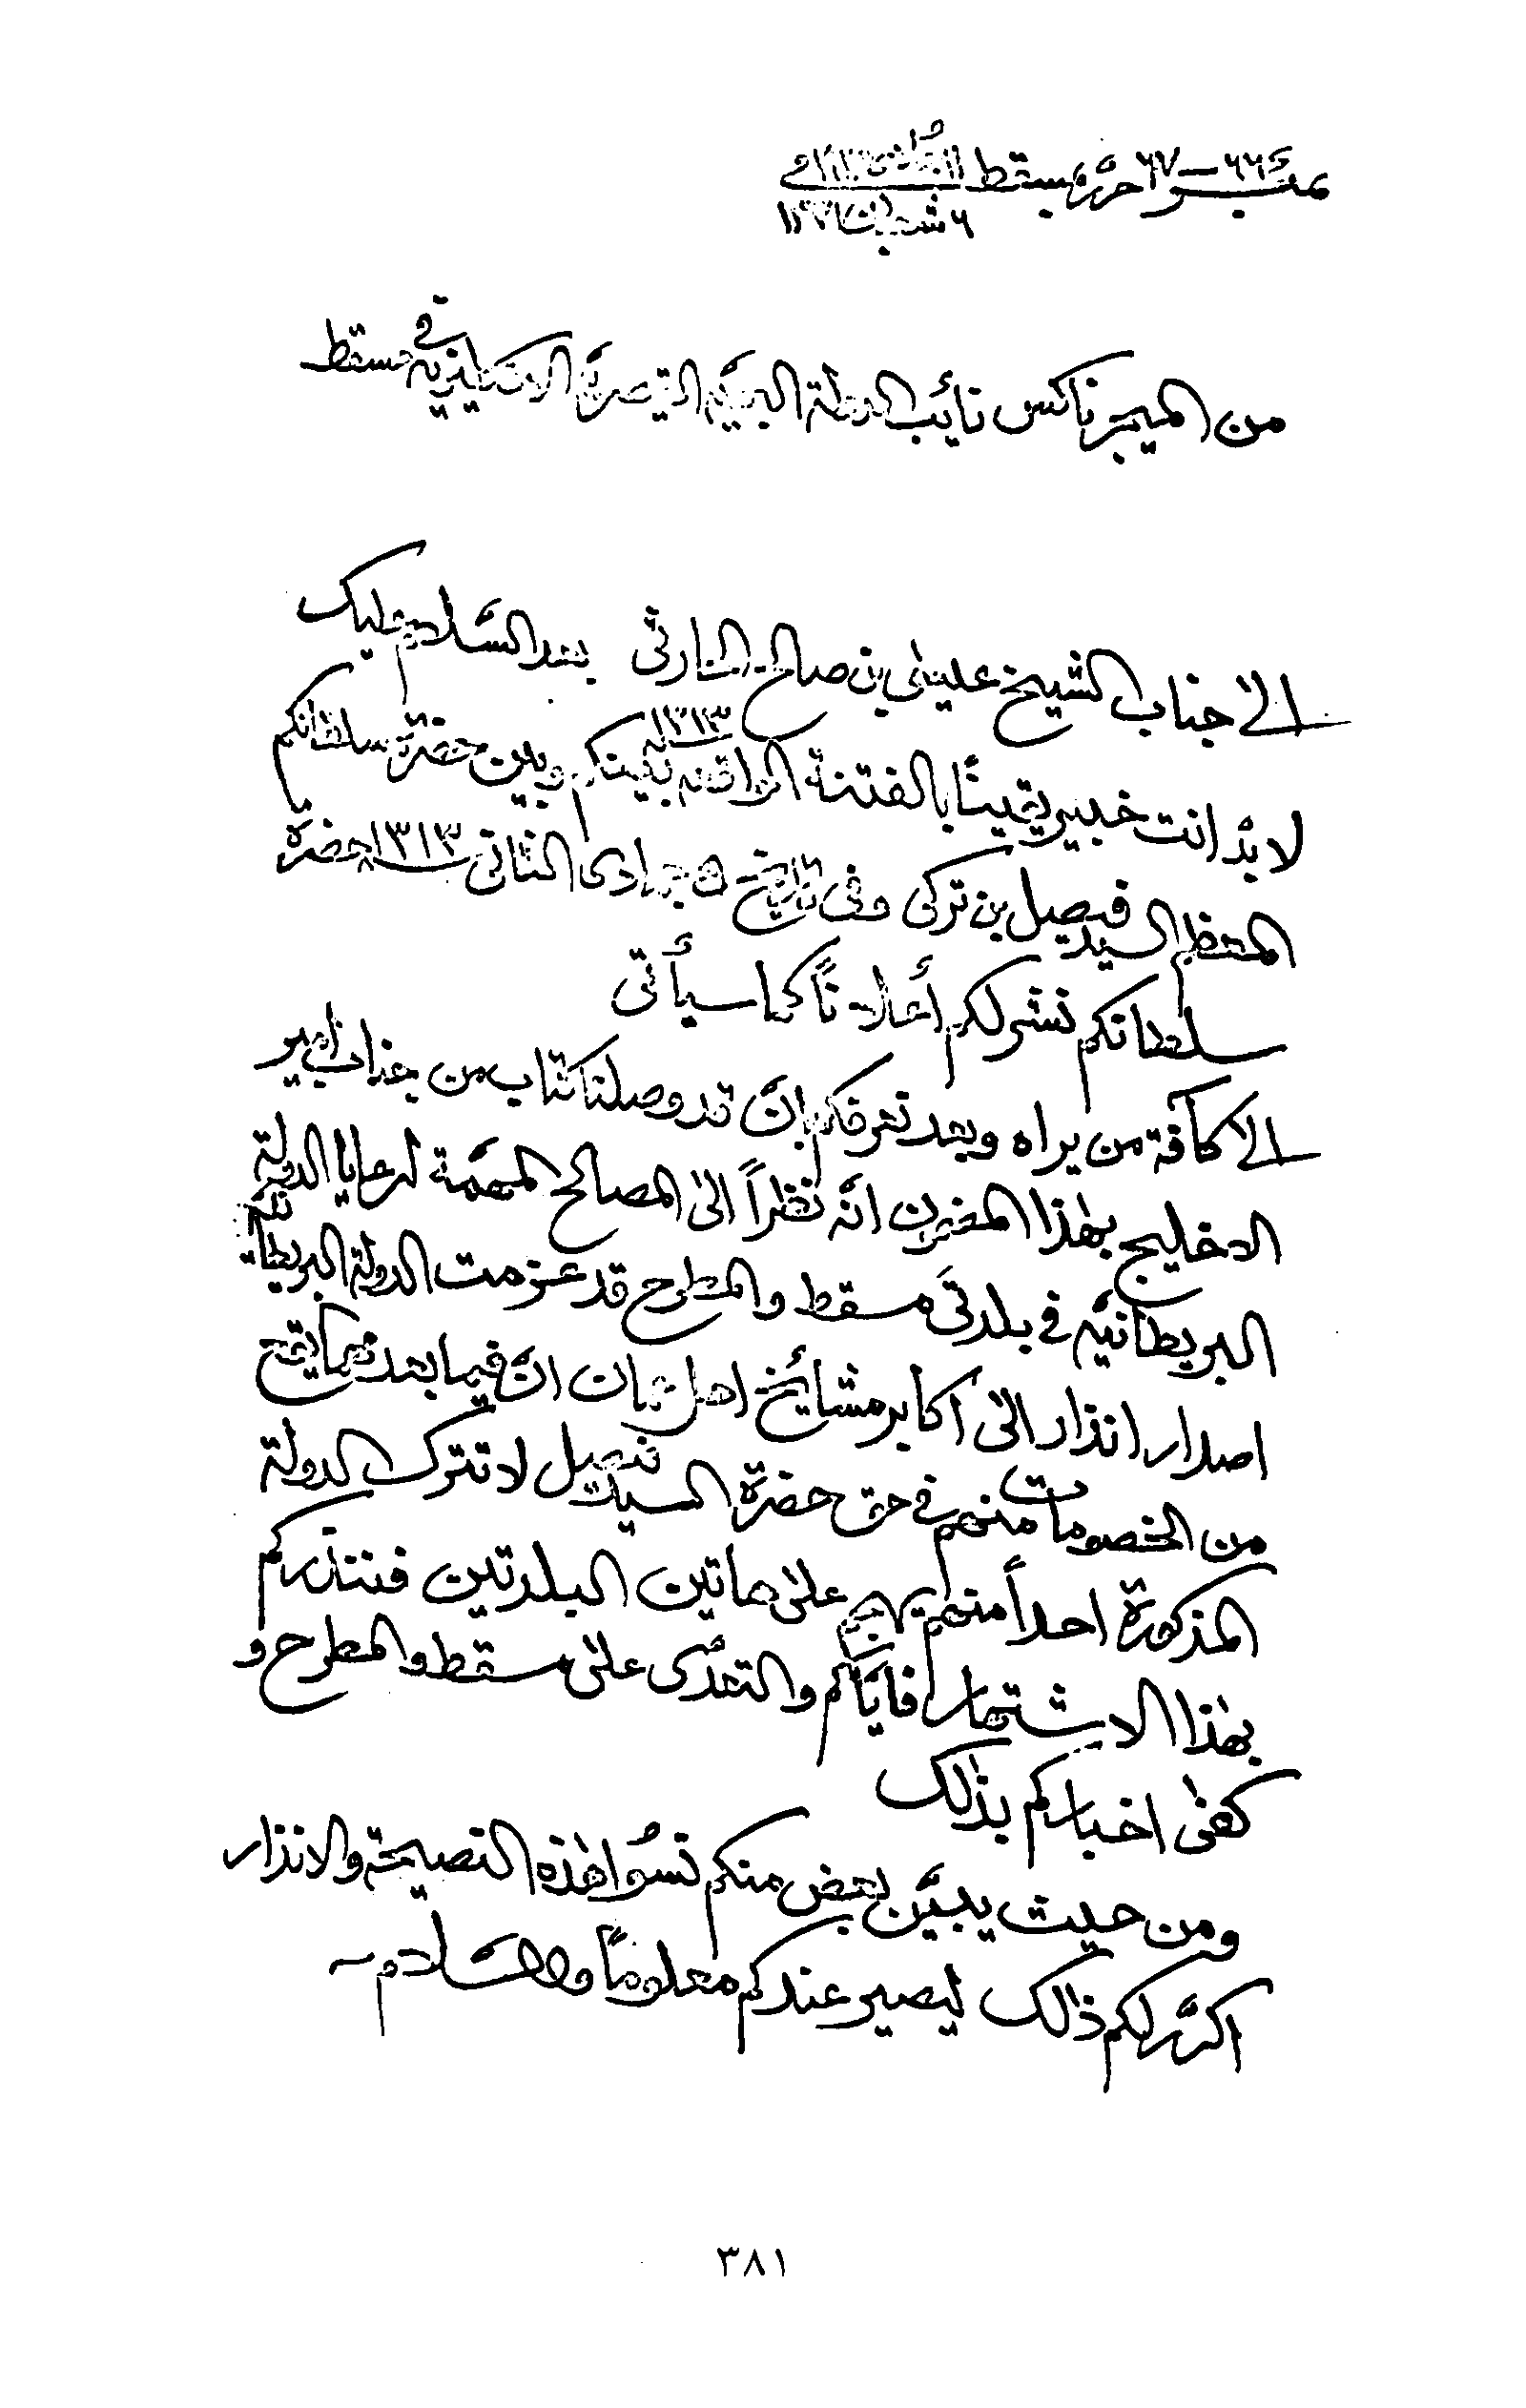 ٦٦٤–٦٧ حرّر مسقط
٦ شعبان
من الميجر ناكس نائب الدولة البهيّة القيصريّة الانكليزيه في مسقط
الى جناب الشيخ عيسٰى بن صالح الحارثى بعد السّلام عليك
لا بدّ انت خبير يقينًا بالفتنة الواقعه ١٣١٣ بينكم وبين حضرة سلطانكم
المعظم السيد فيصل بن تركى وفى تاريخ ٥ جمادى الثانى ١٣١٣ حضرة
سلطانكم نشر لكم أعلاناً كما سيأتى
الى كآفة من يراه وبعد نعرفكم بانّ قد وصلنا كتاب من جناب امير
الخليج بهٰذا المضمون انّه نظراً الىٰ المصالح المهمّة لرعايا الدولة
البريطانيّه في بلدتَي مسقط والمطرح قد عزمت الدولة البريطانيّة
اصدار انذار الىٰ اكابر مشائخ اهل عمان انّ فيما بعد مهما يقع
من الخصومات منهم في حق حضرة السيد فيصل لا تترك الدولة
المذكورة احداً منهم يهجم علىٰ هاتين البلدتين فننذركم
بهٰذا الاشتهار فايّاكم والتعدّى علىٰ مسقط والمطرح و
كفىٰ اخباركم بذٰلك
ومن حيث يبيّن بعض منكم نسُوا هٰذه النصيحة والانذار
اكرّر لكم ذٰلك ليصير عندكم معلوماً والسّلام
٣٨١